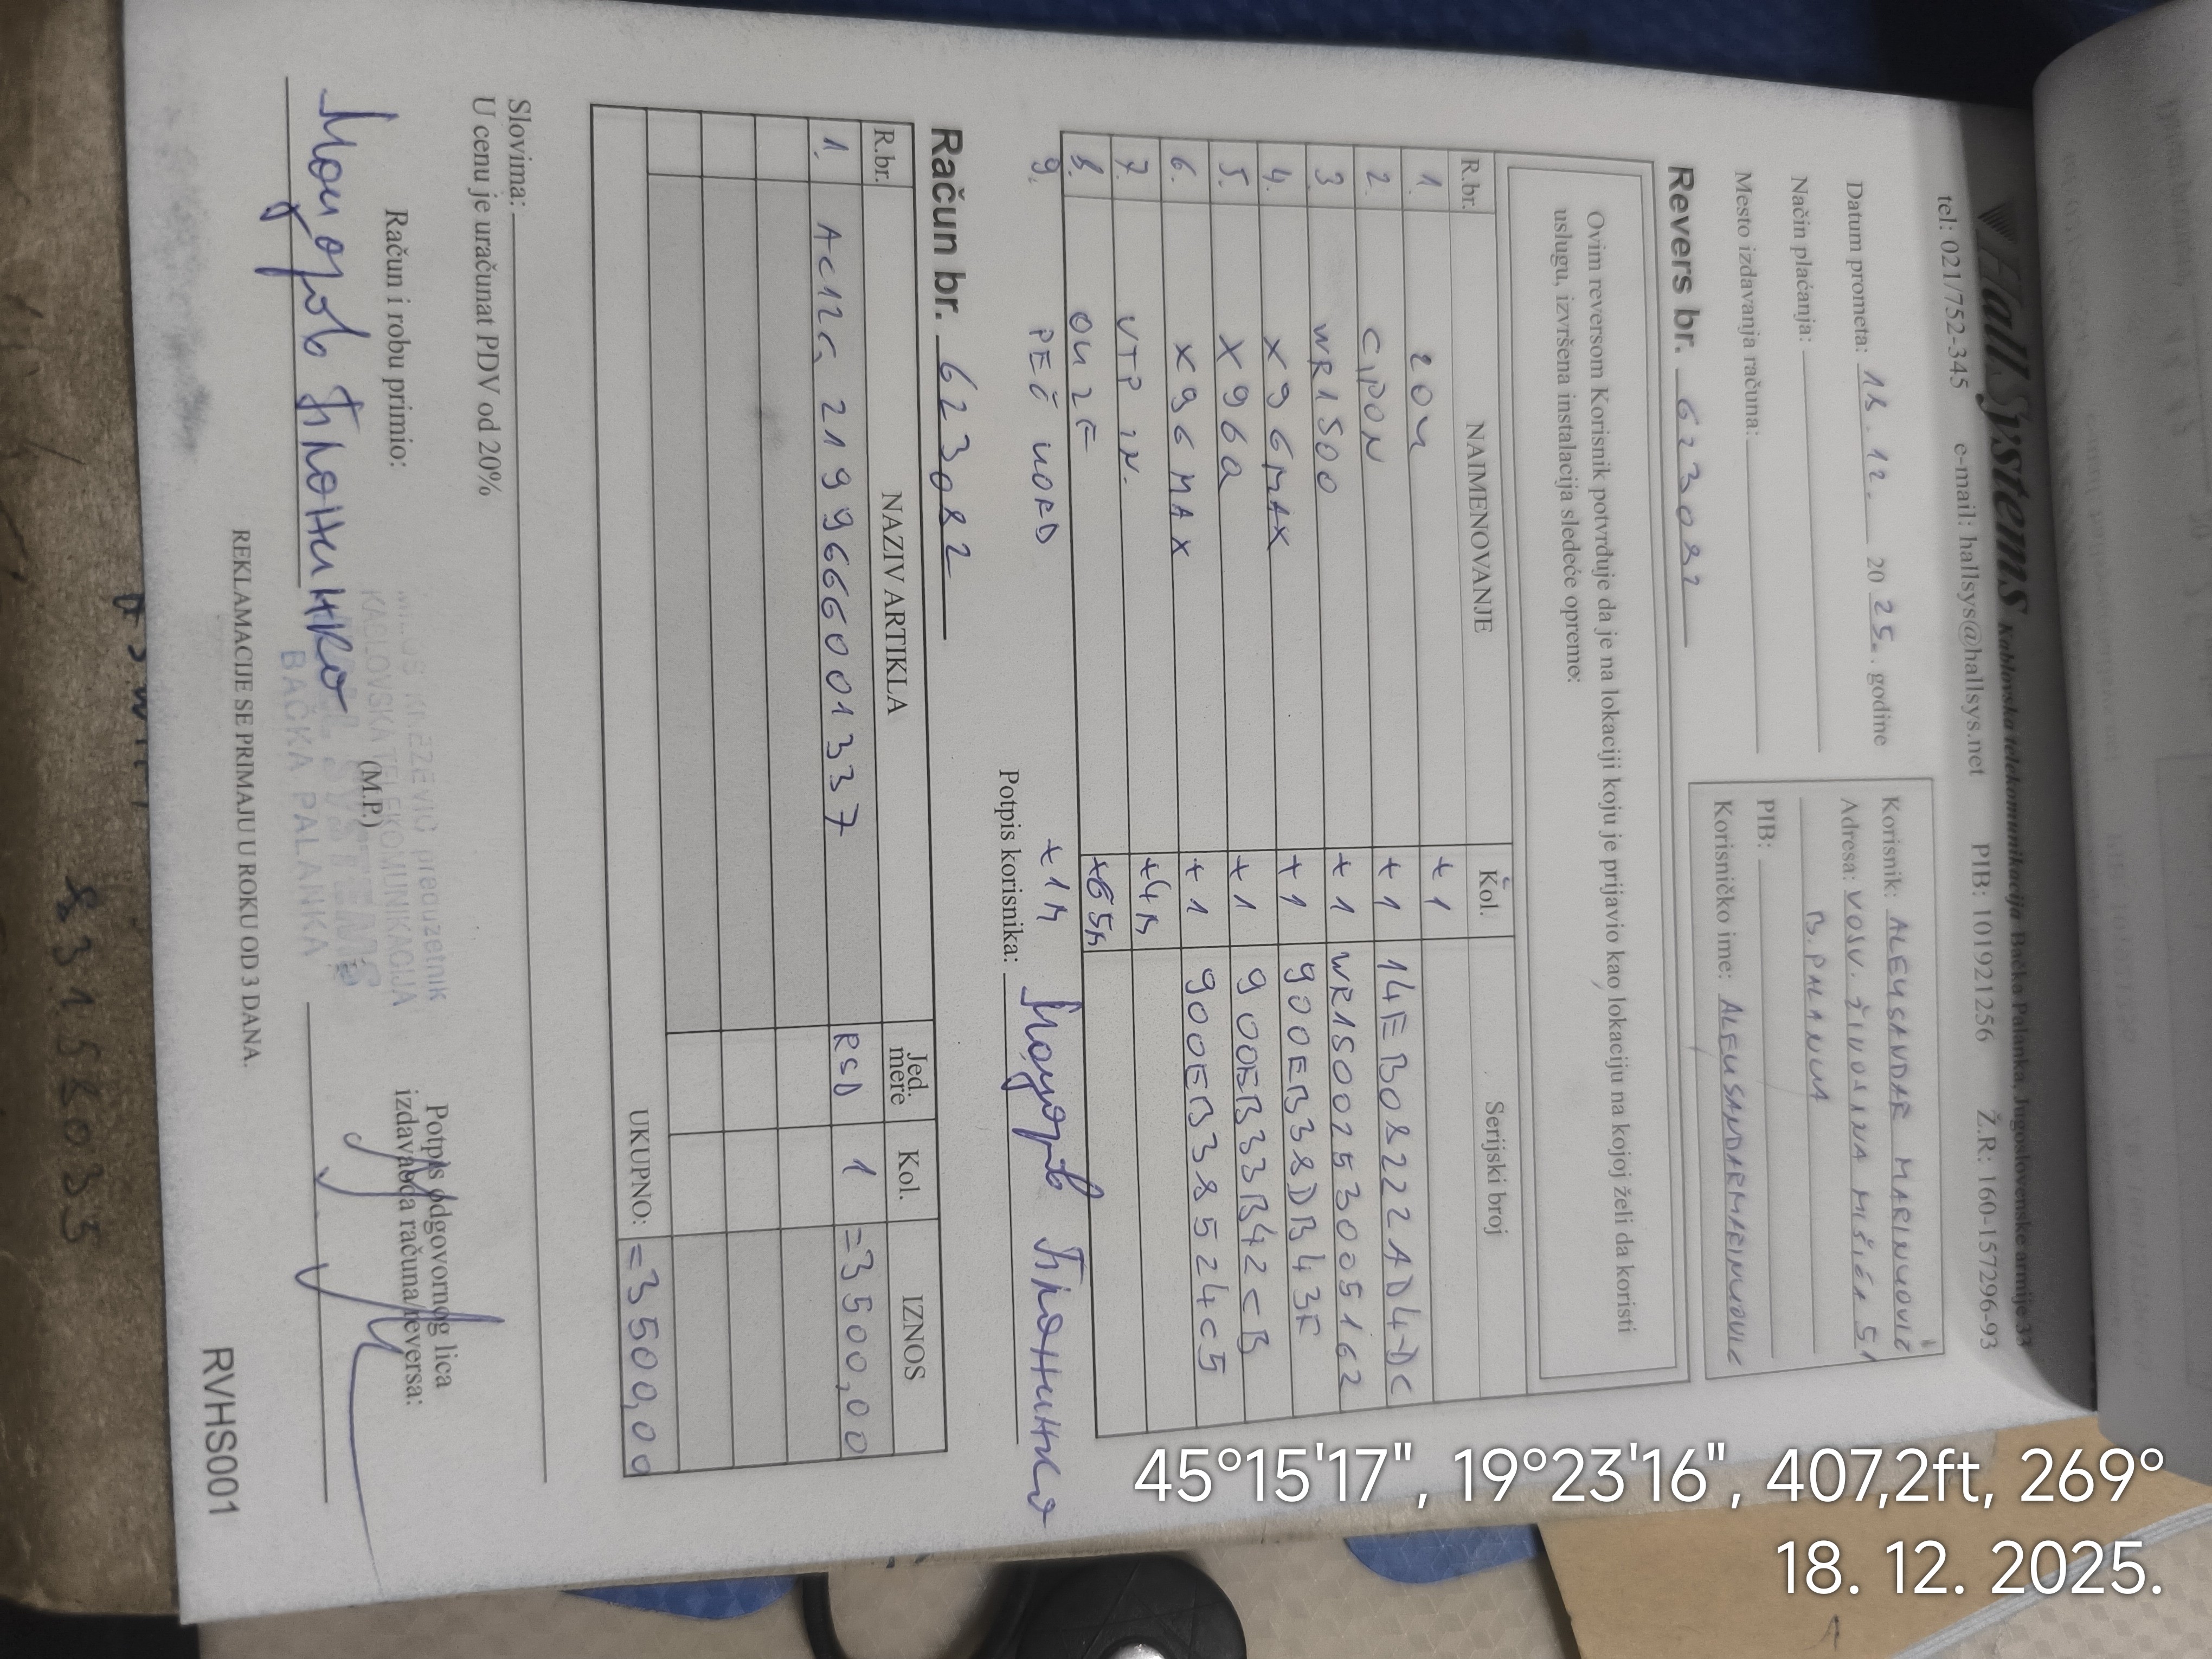 Hall Systems Kablovska telekomunikacija Bačka Palanka, Jugoslovenske armije 33
tel: 021/752-345 e-mail: hallsys@hallsys.net PIB: 101921256 Ž.R: 160-157296-93
Datum prometa: 18. 12. 2025. godine
Način plaćanja:
Mesto izdavanja računa:
Korisnik: ALEKSANDAR MARINKOVIĆ
Adresa: VOJV. ŽIVOJINA MIŠIĆA 51
B. PALANKA
PIB:
Korisničko ime: ALEKSANDARMARINKOVIC
Revers br. 623082
Ovim reversom Korisnik potvrđuje da je na lokaciji koju je prijavio kao lokaciju na kojoj želi da koristi
uslugu, izvršena instalacija sledeće opreme:
R.br. NAIMENOVANJE Kol. Serijski broj
1. ZOK +1
2. GPON +1 14EB08222AD4DC
3 WR1500 +1 WR1500253005162
4. X96MAX +1 900EB38DB43F
5. X96Q +1 900EB33B42CB
6. X96MAX +1 900EB38524C5
7. UTP IN. +4M
8. OK2F +65M
9. PEČ KORD +1M
Potpis korisnika:
Račun br. 623082
R.br. NAZIV ARTIKLA Jed. mere Kol. IZNOS
1. AC12G 2199666001337 RSD 1 =3500,00
UKUPNO: =3500,00
Slovima:
U cenu je uračunat PDV od 20%
Račun i robu primio:
(M.P.)
Potpis odgovornog lica
izdavaoca računa/reversa:
KNEŽEVIĆ preduzetnik
KABLOVSKA TELEKOMUNIKACIJA
BAČKA PALANKA
REKLAMACIJE SE PRIMAJU U ROKU OD 3 DANA.
RVHS001
45°15'17", 19°23'16", 407,2ft, 269°
18. 12. 2025.